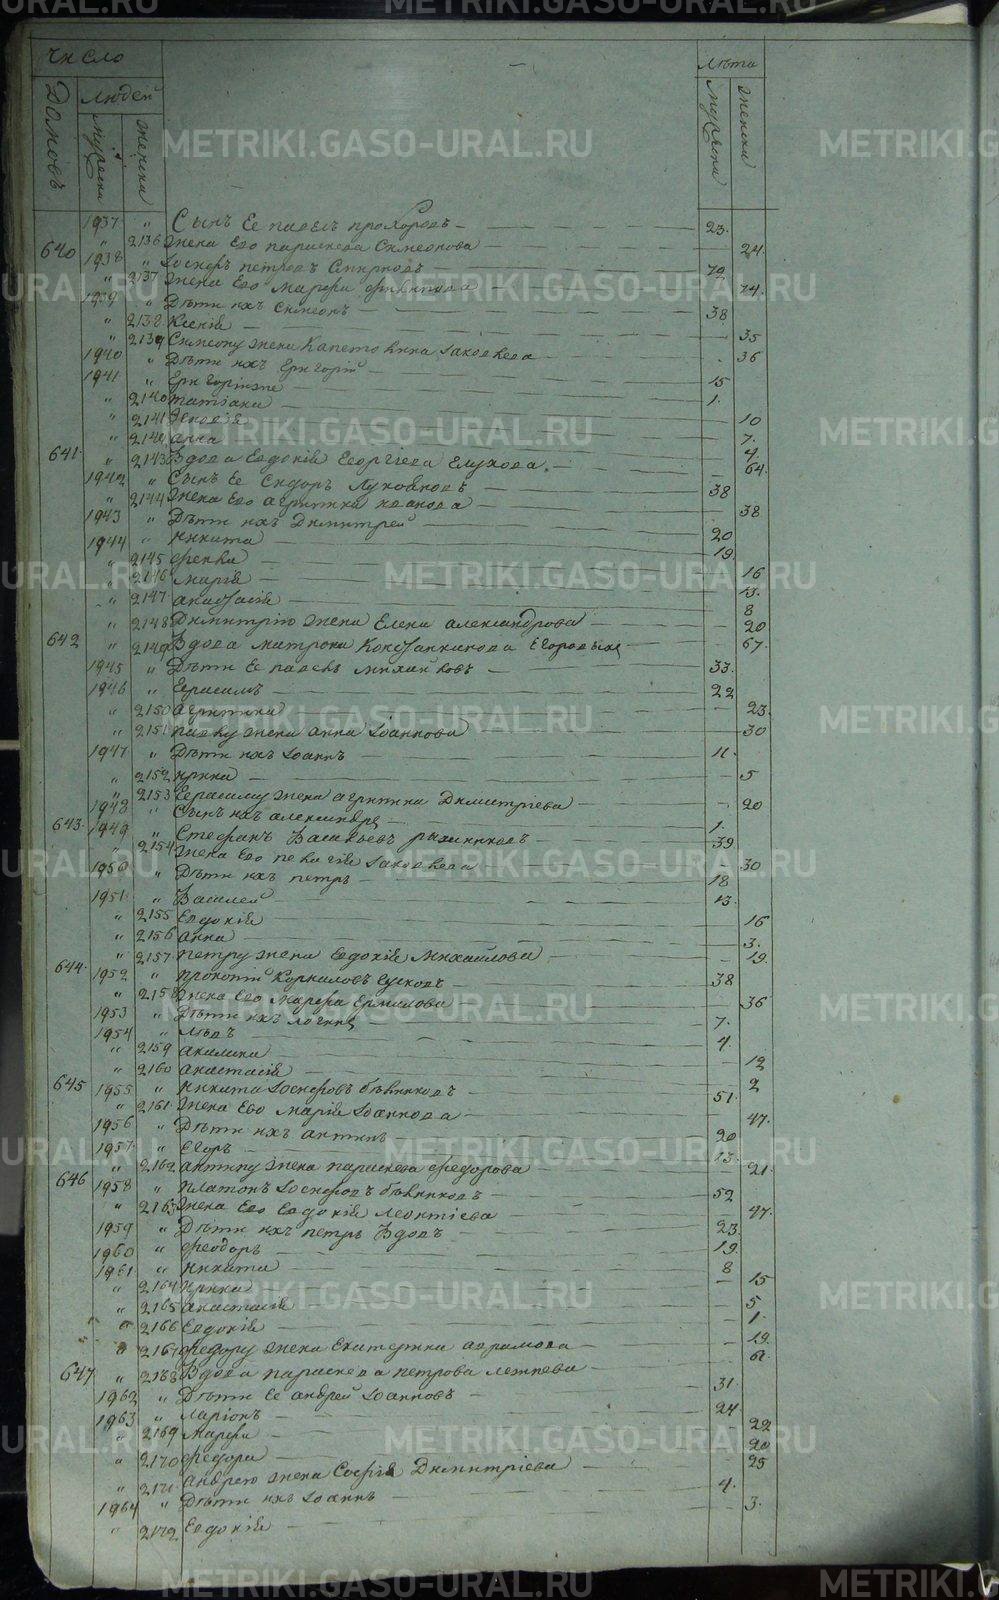 число
лѣта
Домовъ
людей
мужска
женска
мужска
женска
1937 " Сынъ Ее павелъ прохоровъ — 23.
" 2136 жена Его параскева Симеонова — 24
640 1938 " Іосифъ петровъ Смирновъ — 72
" 2137 жена Его марфа — 74.
1939 " Дѣти ихъ Симеонъ — 38
" 2138 Ксенія — 35
" 2139 Симеону жена Капетолина Іаковлева — 36
1940 " Дѣти ихъ Григорій — 15
1941 " — 1.
" 2140 татіана — 10
" 2141 — 7.
" 2142 анна — 4
641 " 2143 Вдова Евдокія Георгіева — 64.
1942 " Сынъ Ее Сидоръ — 38
" 2144 жена Его агрипина иванова — 38
1943 " Дѣти ихъ Димитрей — 20
1944 " никита — 19.
" 2145 фекла — 16
" 2146 марія — 13.
" 2147 анастасія — 8
" 2148 Димитрію жена Елена александрова — 20
642 " 2149 Вдова матрона Константинова — 67.
1945 " Дѣти Ее павелъ — 33.
1946 " Герасимъ — 22
" 2150 агрипина — 23.
" 2151 павлу жена анна Іоаннова — 30
1947 " Дѣти ихъ Іоаннъ — 11.
" 2152 ирина — 5
" 2153 Герасиму жена агрипина Димитріева — 20
1948 " Сынъ ихъ александръ — 1.
643. 1949 " Стефанъ Васильевъ — 39
" 2154 жена Его пелагія Іаковлева — 30
1950 " Дѣти ихъ петръ — 18
1951 " Василей — 13.
" 2155 Евдокія — 16
" 2156 анна — 3.
" 2157 петру жена Евдокія михайлова — 19.
644. 1952 " прокопій Корниловъ — 38
" 2158 жена Его марфа Ермилова — 36
1953 " Дѣти ихъ логинъ — 7.
1954 " левъ — 4.
" 2159 акилина — 12
" 2160 анастасія — 2
645 1955 " никита Іосифовъ — 51.
" 2161 жена Его марія Іоаннова — 47.
1956 " Дѣти ихъ антипъ — 20
1957 " Егоръ — 13.
" 2162 антипу жена параскева федорова — 21.
646 1958 " платонъ Іосифовъ — 52
" 2163 жена Его Евдокія леонтіева — 47.
1959 " Дѣти ихъ петръ Вдовъ — 23
1960 " феодоръ — 19.
1961 " никита — 8
" 2164 ирина — 15
" 2165 анастасія — 5
" 2166 Евдокія — 1.
" 2167 федору жена Екатерина аврамова — 19.
647 " 2168 Вдова параскева петрова — 61
1962 " Дѣти Ее андрей Іоанновъ — 31
1963 " ларіонъ — 24
" 2169 марфа — 22
" 2170 федора — 20
" 2171 андрею жена Софія Димитріева — 25
1964 " Дѣти ихъ Іоаннъ — 4.
" 2172 Евдокія — 3.
METRIKI.GASO-URAL.RU